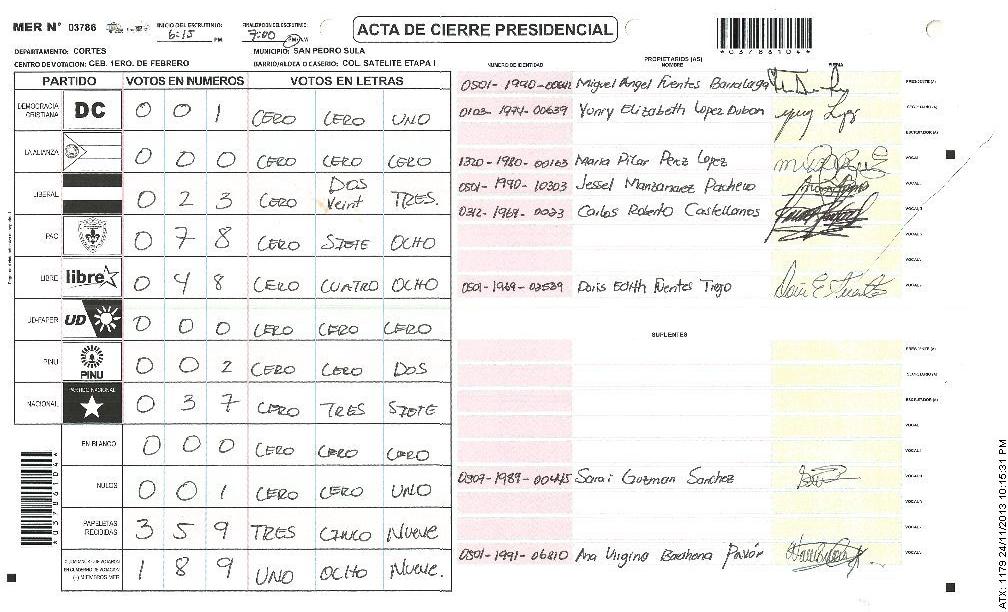 MER N° 03786 INICIO DEL ESCRUTINIO: 6:15 PM FINALIZACION DEL ESCRUTINIO: 7:00 PM ACTA DE CIERRE PRESIDENCIAL
*0378610 4*
DEPARTAMENTO: CORTES MUNICIPIO: SAN PEDRO SULA
CENTRO DE VOTACION: CEB. 1ERO. DE FEBRERO BARRIO/ALDEA O CASERIO: COL SATELITE ETAPA I
PARTIDO VOTOS EN NUMEROS VOTOS EN LETRAS
DEMOCRACIA CRISTIANA DC 0 0 1 CERO CERO UNO
LA ALIANZA 0 0 0 CERO CERO CERO
LIBERAL 0 2 3 CERO DOS Veint TRES.
PAC 0 7 8 CERO SIETE OCHO
LIBRE libre 0 4 8 CERO CUATRO OCHO
UD-FAPER UD 0 0 0 CERO CERO CERO
PINU PINU 0 0 2 CERO CERO DOS
NACIONAL PARTIDO NACIONAL 0 3 7 CERO TRES SIETE
EN BLANCO 0 0 0 CERO CERO CERO
NULOS 0 0 1 CERO CERO UNO
PAPELETAS RECIBIDAS 3 5 9 TRES CINCO NUEVE
(-) MIEMBROS MER 1 8 9 UNO OCHO NUEVE.
PROPIETARIOS (AS)
NUMERO DE IDENTIDAD NOMBRE FIRMA
Miguel Angel Fuentes Barralaga PRESIDENTE (A)
0103-1974-00639 Yunry Elizabeth Lopez Dubon SECRETARIO (A)
ESCRUTADOR (A)
1320-1980-00163 Maria Pilar Perez Lopez VOCAL
0501-1990-10303 Jessel Manzanarez Pacheco VOCAL
Carlos Roberto Castellanos VOCAL
VOCAL
VOCAL
0501-1969-03539 Doris Edith Fuentes Trejo VOCAL
SUPLENTES
PRESIDENTE (A)
SECRETARIO (A)
ESCRUTADOR (A)
VOCAL
VOCAL
Sarai Guzman Sanchez VOCAL
VOCAL
VOCAL
0501-1991-06810 Ana Virginia Barahona Pavón VOCAL
*0378610 4*
ATX: 1179 24/11/2013 10:15:31 PM